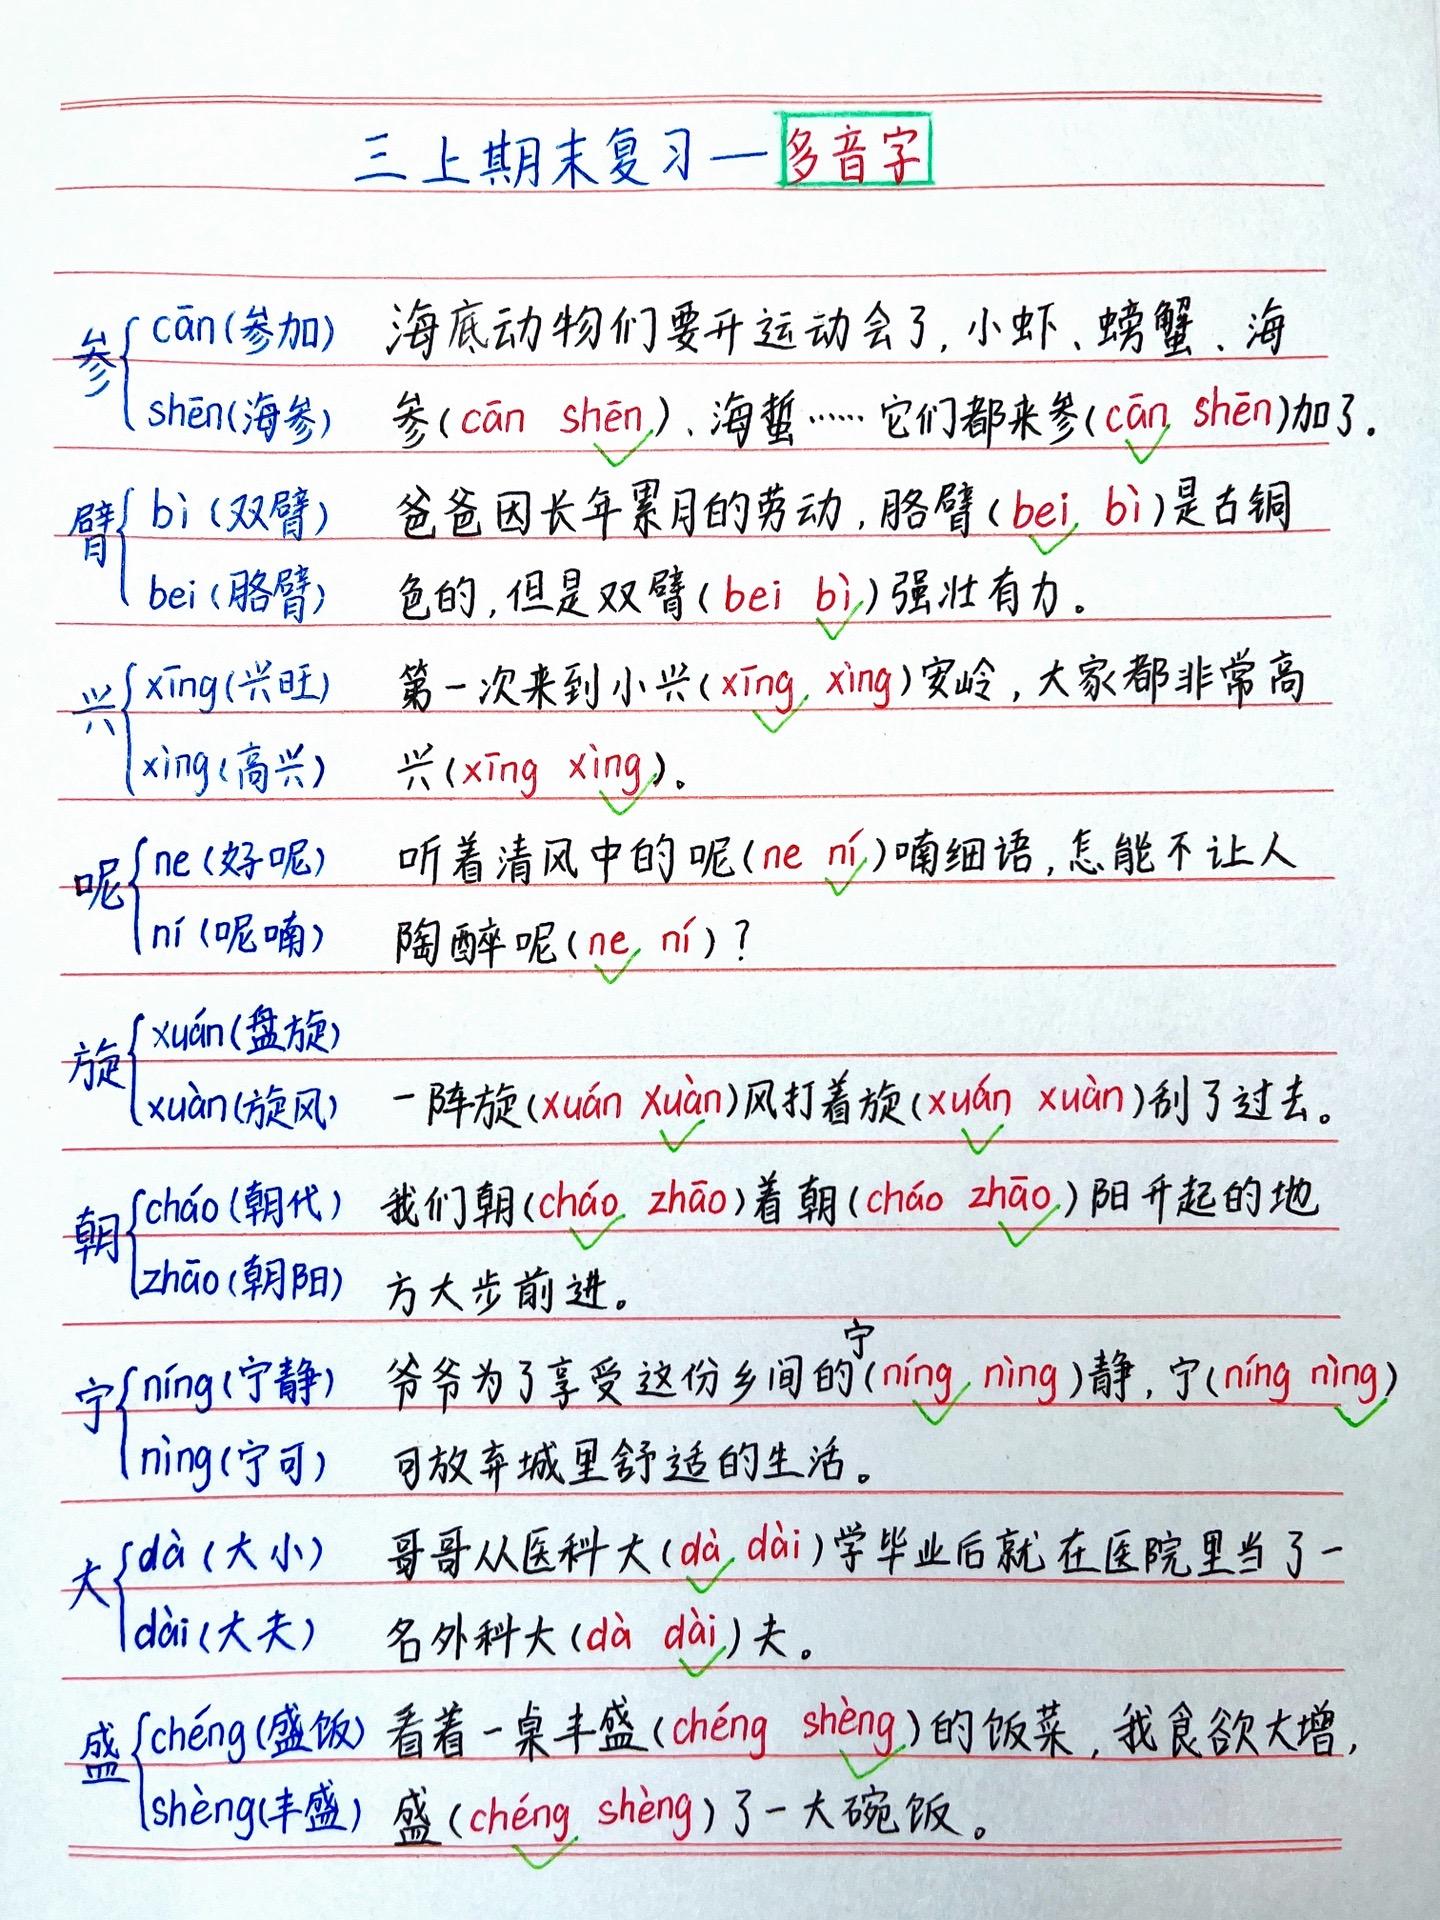 三上期末复习—多音字
参 cān(参加) 海底动物们要开运动会了,小虾、螃蟹、海
shēn(海参) 参(cān shēn)、海蜇……它们都来参(cān shēn)加了.
臂 bì(双臂) 爸爸因长年累月的劳动,胳臂(bei bì)是古铜
bei(胳臂) 色的,但是双臂(bei bì)强壮有力。
兴 xīng(兴旺) 第一次来到小兴(xīng xìng)安岭,大家都非常高
xìng(高兴) 兴(xīng xìng)。
呢 ne(好呢) 听着清风中的呢(ne ní)喃细语,怎能不让人
ní(呢喃) 陶醉呢(ne ní)?
旋 xuán(盘旋)
xuàn(旋风) 一阵旋(xuán xuàn)风打着旋(xuán xuàn)刮了过去。
朝 cháo(朝代) 我们朝(cháo zhāo)着朝(cháo zhāo)阳升起的地
zhāo(朝阳) 方大步前进。
宁 níng(宁静) 爷爷为了享受这份乡间的宁(níng nìng)静,宁(níng nìng)
nìng(宁可) 可放弃城里舒适的生活。
大 dà(大小) 哥哥从医科大(dà dài)学毕业后就在医院里当了一
dài(大夫) 名外科大(dà dài)夫。
盛 chéng(盛饭) 看着一桌丰盛(chéng shèng)的饭菜,我食欲大增,
shèng(丰盛) 盛(chéng shèng)了一大碗饭。